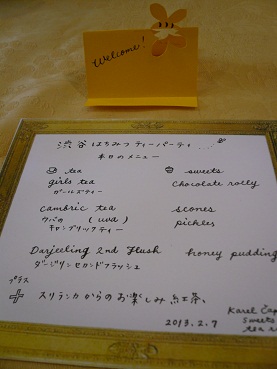 Welcome!
渋谷はちみつティーパーティ...
本日のメニュー
tea sweets
girls tea chocolate rolly
ガールズティー
cambric tea scones
ウバの (uva) pickles
キャンブリックティー
Darjeeling 2nd flush honey pudding
ダージリンセカンドフラッシュ
プラス
+ スリランカからのお楽しみ紅茶。
Karel Čap
2013.2.7 sweets
tea